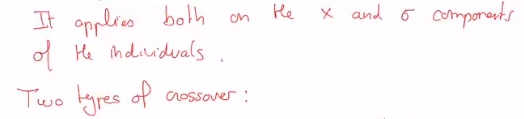 It applies both on the x and σ components
of the individuals.
Two types of crossover: